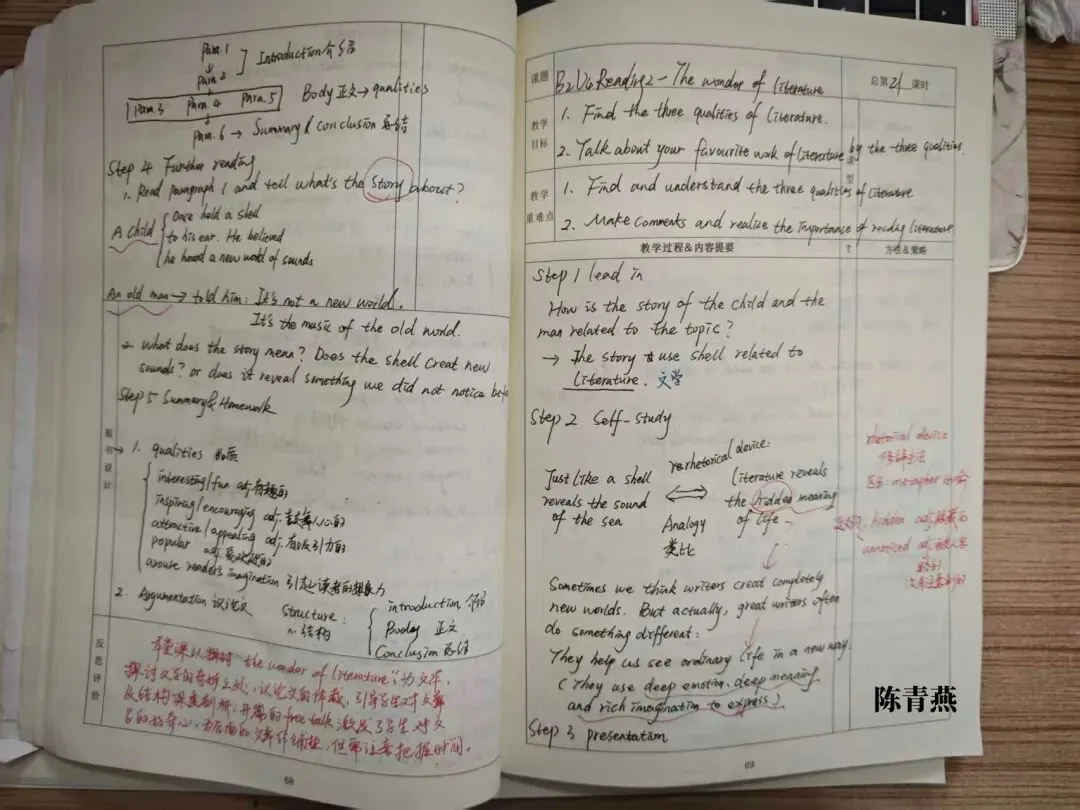 Para.1
Para.2
Introduction介绍
Para.3 Para.4 Para.5
Body 正文→qualities
Para.6 → Summary & conclusion 总结
Step 4 Further reading
1. Read paragraph 1 and tell what's the story about?
A child
Once held a shell
to his ear. He believed
he heard a new world of sounds
An old man → told him: It's not a new world.
It's the music of the old world.
2. What does the story mean? Does the shell creat new
sounds? or does it reveal something we did not notice
Step 5 Summary & Homework
板书设计
1. qualities
interesting/fun adj.有趣的
inspiring/encouraging adj.鼓舞人心的
attractive/appealing adj.有吸引力的
popular adj.受欢迎的
arouse readers' imagination 引起读者的想象力
2. Argumentation 议论文
Structure:
n.结构
introduction 介绍
Body 正文
Conclusion 总结
反思评价
本堂课以 "the wonder of literature"为文本,
探讨文学的奇妙之处,议论文的体裁,
及结构深度剖析,开篇的free talk激发了学生对文
学的好奇心,为后面的 铺垫,但需注意把握时间。
68
课题
B2U4 Reading2 - The wonder of literature
总第21课时
教学目标
1. Find the three qualities of literature.
2. Talk about your favourite work of literature by the three qualities.
课型
教学重难点
1. Find and understand the three qualities of literature
2. Make comments and realise the importance of reading literature
教学过程&内容提要
方法&策略
Step 1 lead in
How is the story of the child and the
man related to the topic?
→ The story use shell related to
literature. 文学
Step 2 Self-study
rhetorical device:
Just like a shell
reveals the sound
of the sea
Analogy
类比
literature reveals
the hidden meaning
of life
rhetorical device
修辞手法
hidden adj.
unnoticed adj.
没有注意到的
Sometimes we think writers creat completely
new worlds. But actually, great writers often
do something different:
They help us see ordinary life in a new way.
(They use deep emotion, deep meaning
and rich imagination to express)
Step 3 presentation
陈青燕
69